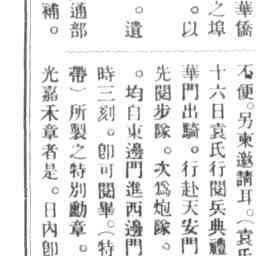 不便。另東邀請耳。（袁氏
十六日袁氏行閱兵典禮
華門出騎。行赴天安門
先閱步隊。次爲炮隊。
。均自東邊門進西邊門
時三刻。卽可閱畢。（特
帶）所製之特別勳章。
光嘉禾章者是。日內卽
華僑
之埠
。以
。遺
通部
補。